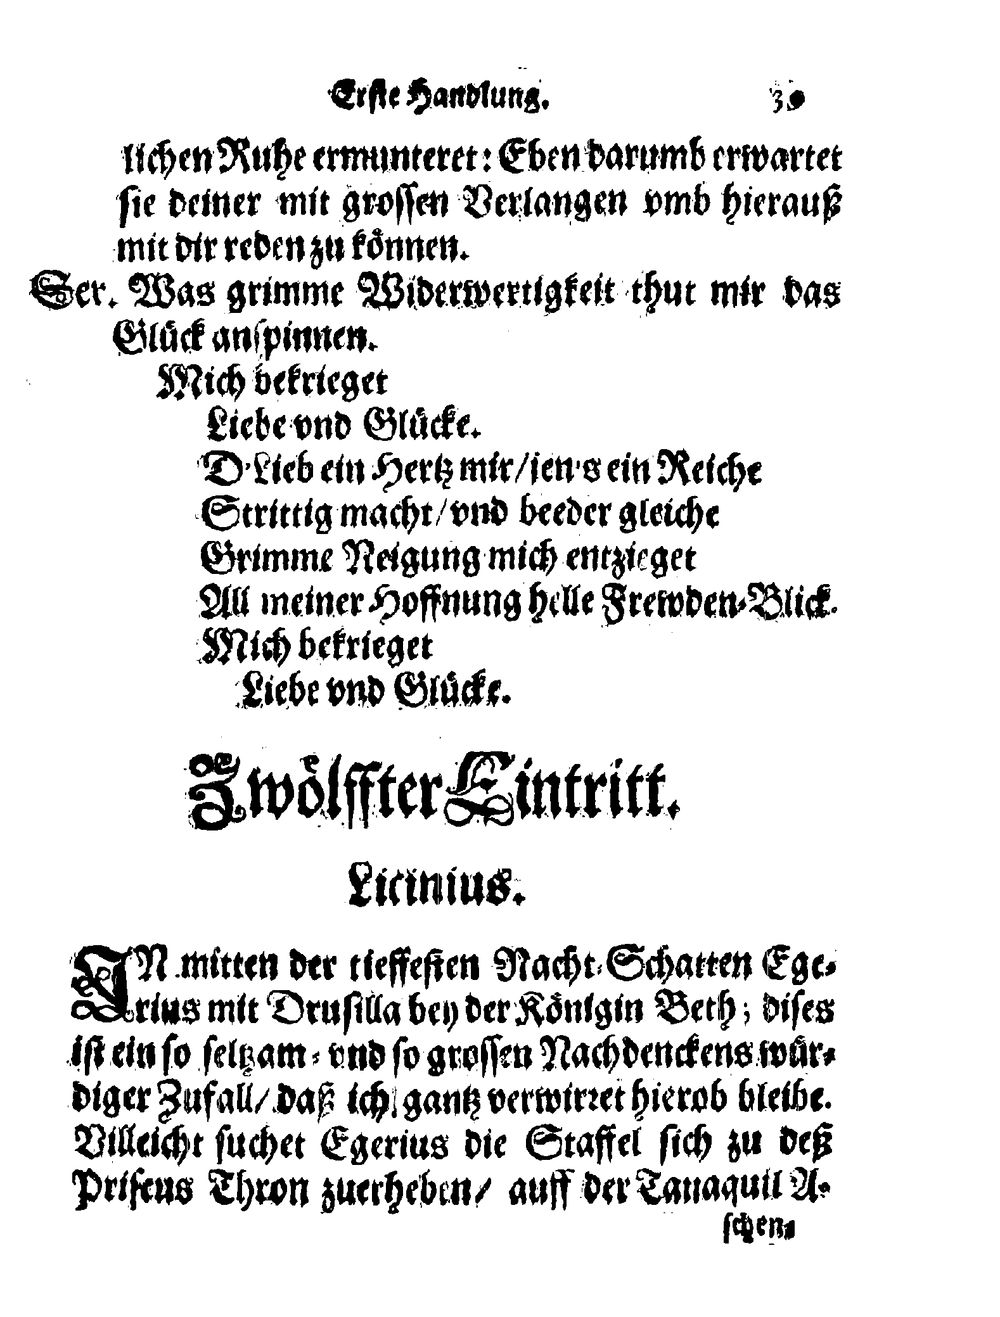 Erste Handlung.
lichen Ruhe ermunteret: Eben darumb erwartet
sie deiner mit grossen Verlangen vmb hierauß
mit dir reden zu können.
Ser. Was grimme Widerwertigkeit thut mir das
Glück anspinnen.
Mich bekrieget
Liebe vnd Glücke.
D'Lieb ein Hertz mir/jen's ein Reiche
Strittig macht/vnd beeder gleiche
Grimme Neigung mich entzieget
All meiner Hoffnung helle Frewden-Blick.
Mich bekrieget
Liebe vnd Glücke.
Zwölffter Eintritt.
Licinius.
IN mitten der tieffesten Nacht-Schatten Ege-
rius mit Drusilla bey der Königin Beth; dises
ist ein so seltzam- vnd so grossen Nachdenckens wür-
diger Zufall/ daß ich gantz verwirret hierob bleibe.
Villeicht suchet Egerius die Staffel sich zu deß
Priscus Thron zuerheben/ auff der Tanaquil A-
schen